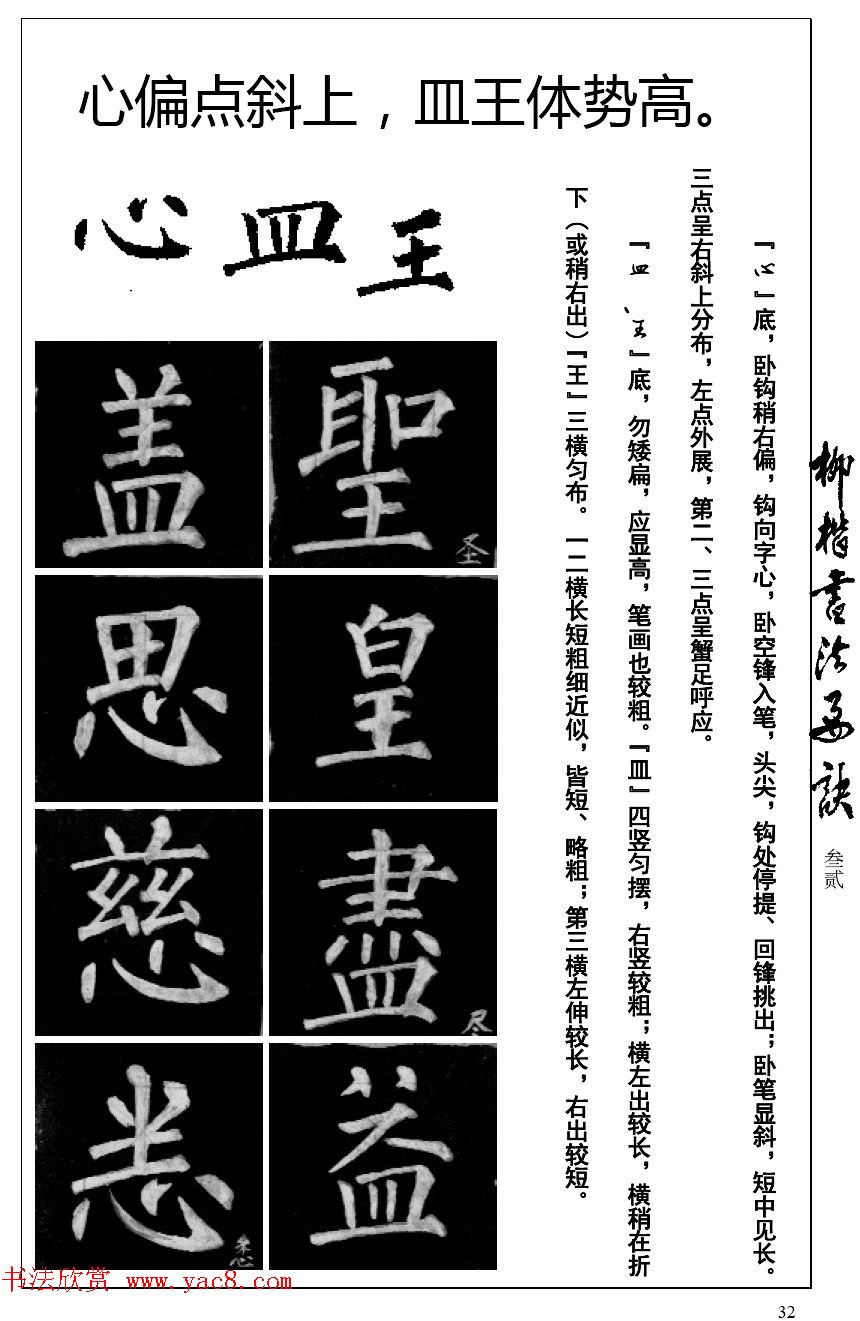 心偏点斜上，皿王体势高。
心 皿 王
『心』底，卧钩稍右偏，钩向字心，卧空锋入笔，头尖，钩处停提、回锋挑出；卧笔显斜，短中见长。
三点呈右斜上分布，左点外展，第二、三点呈蟹足呼应。
『皿、王』底，勿矮扁，应显高，笔画也较粗。『皿』四竖匀摆，右竖较粗；横左出较长，横稍在折
下（或稍右出）『王』三横匀布。一二横长短粗细近似，皆短、略粗；第三横左伸较长，右出较短。
盖 聖 圣
思 皇
慈 盡 尽
悉 益
柳楷书法要诀
叁贰
书法欣赏 www.yac8.com
32